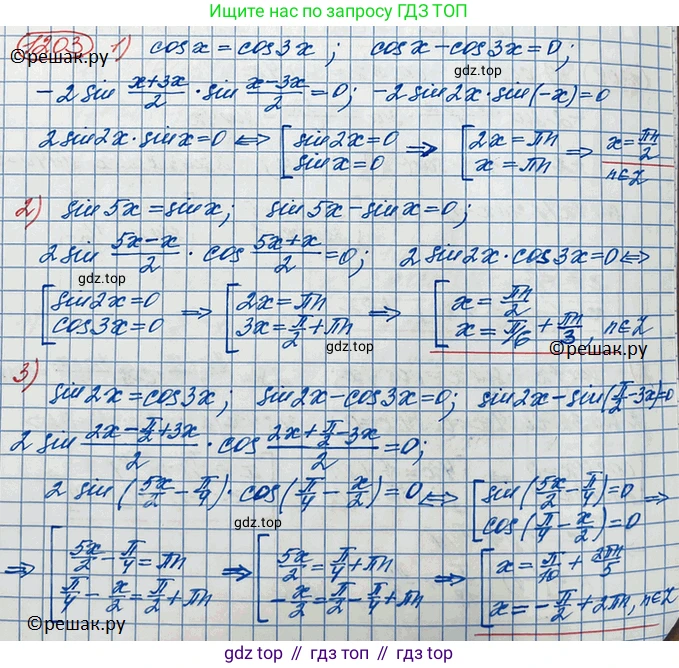 Ищите по запросу ГДЗ ТОП
1203 1) cos x = cos 3x ; cos x − cos 3x = 0 ;
©reшак.ру
gdz.top
−2 sin (x+3x)/2 · sin (x−3x)/2 = 0; −2 sin 2x · sin(−x) = 0
2 sin 2x · sin x = 0 ⟺ [ sin 2x = 0 sin x = 0 ⟹ [ 2x = πn x = πn ⟹ x = πn/2 n∈Z
2) sin 5x = sin x ; sin 5x − sin x = 0 ;
2 sin (5x−x)/2 · cos (5x+x)/2 = 0; 2 sin 2x · cos 3x = 0 ⟺
gdz.top
[ sin 2x = 0 cos 3x = 0 ⟹ [ 2x = πn 3x = π/2 + πn ⟹ [ x = πn/2 x = π/6 + πn/3, n∈Z
gdz.top
©reшак.ру
3) sin 2x = cos 3x ; sin 2x − cos 3x = 0 ; sin 2x − sin(π/2 − 3x) = 0
2 sin (2x − π/2 + 3x)/2 · cos (2x + π/2 − 3x)/2 = 0;
2 sin (5x/2 − π/4) · cos (π/4 − x/2) = 0 ⟺ [ sin (5x/2 − π/4) = 0 cos (π/4 − x/2) = 0 ⟹
gdz.top
⟹ [ 5x/2 − π/4 = πn π/4 − x/2 = π/2 + πn ⟹ [ 5x/2 = π/4 + πn −x/2 = π/2 − π/4 + πn ⟹ [ x = π/10 + 2πn/5 x = −π/2 + 2πn, n∈Z
©reшак.ру
gdz.top
gdz.top // гдз топ // гдз.топ